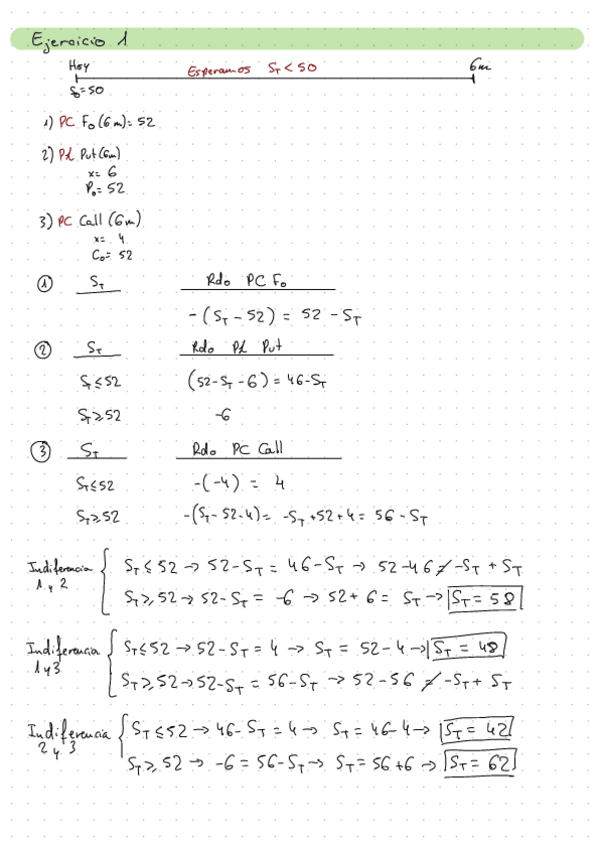 Ejercicio 1
Hoy Esperamos S_T < 50 6m
S_0 = 50
1) PC F_0 (6m) = 52
2) PL Put (6m)
x = 6
P_0 = 52
3) PC Call (6m)
x = 4
C_0 = 52
① S_T Rdo PC F_0
-(S_T - 52) = 52 - S_T
② S_T Rdo PL Put
S_T ≤ 52 (52 - S_T - 6) = 46 - S_T
S_T ≥ 52 -6
③ S_T Rdo PC Call
S_T ≤ 52 -(-4) = 4
S_T ≥ 52 -(S_T - 52 - 4) = -S_T + 52 + 4 = 56 - S_T
Indiferencia 1 y 2
S_T ≤ 52 → 52 - S_T = 46 - S_T → 52 - 46 ≠ -S_T + S_T
S_T ≥ 52 → 52 - S_T = -6 → 52 + 6 = S_T → S_T = 58
Indiferencia 1 y 3
S_T ≤ 52 → 52 - S_T = 4 → S_T = 52 - 4 → S_T = 48
S_T ≥ 52 → 52 - S_T = 56 - S_T → 52 - 56 ≠ -S_T + S_T
Indiferencia 2 y 3
S_T ≤ 52 → 46 - S_T = 4 → S_T = 46 - 4 → S_T = 42
S_T ≥ 52 → -6 = 56 - S_T → S_T = 56 + 6 → S_T = 62